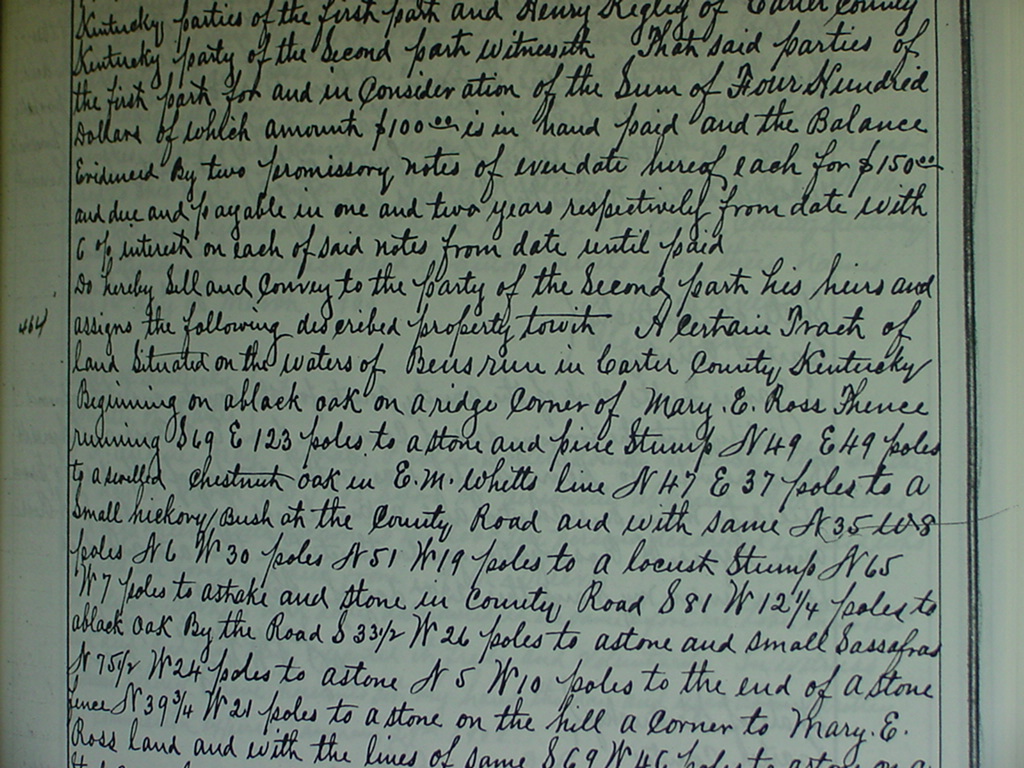 Kentucky parties of the first part and Henry of Carter County
Kentucky party of the Second part Witnesseth That said parties of
the first part for and in Consideration of the Sum of Four Hundred
Dollars of which amount $100.00 is in hand paid and the Balance
Evidenced By two promissory notes of even date hereof each for $150.00
and due and payable in one and two years respectively from date with
6 % interest on each of said notes from date until paid
Do hereby Sell and Convey to the party of the Second part his heirs and
assigns the following described property towit A Certain Tract of
land Situated on the waters of Bens run in Carter County, Kentucky
Beginning on a black oak on a ridge Corner of Mary. E. Ross Thence
running S 69 E 123 poles to a stone and pine Stump N 49 E 49 poles
to a Chestnut oak in E. M. Whitts line N 47 E 37 poles to a
Small hickory Bush at the County Road and with same N 35 W 8
poles N 6 W 30 poles N 51 W 19 poles to a locust Stump N 65
W 7 poles to a stake and stone in County Road S 81 W 12 1/4 poles to
a black oak By the Road S 33 1/2 W 26 poles to a stone and small Sassafras
N 75 1/2 W 24 poles to a stone N 5 W 10 poles to the end of a stone
fence N 39 3/4 W 21 poles to a stone on the hill a Corner to Mary. E.
Ross land and with the lines of same S 69 W 46 poles to a stone on a